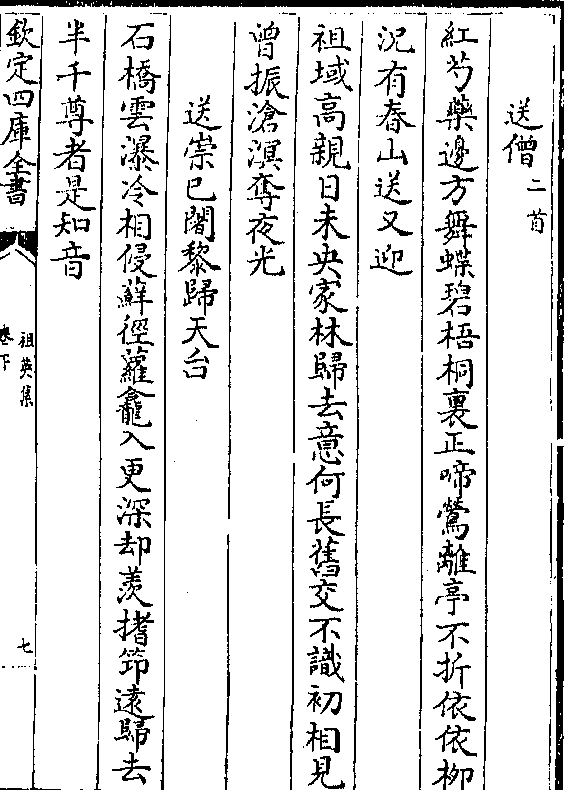 送僧二首
紅芍藥邊方舞蝶碧梧桐裏正啼鶯離亭不折依依柳
況有春山送又迎
祖域高親日未央家林歸去意何長舊交不識初相見
曾振滄溟奪夜光
送崇已闍黎歸天台
石橋雲瀑冷相侵蘚徑蘿龕入更深却羨搘筇遠歸去
半千尊者是知音
欽定四庫全書
祖英集
卷下
七